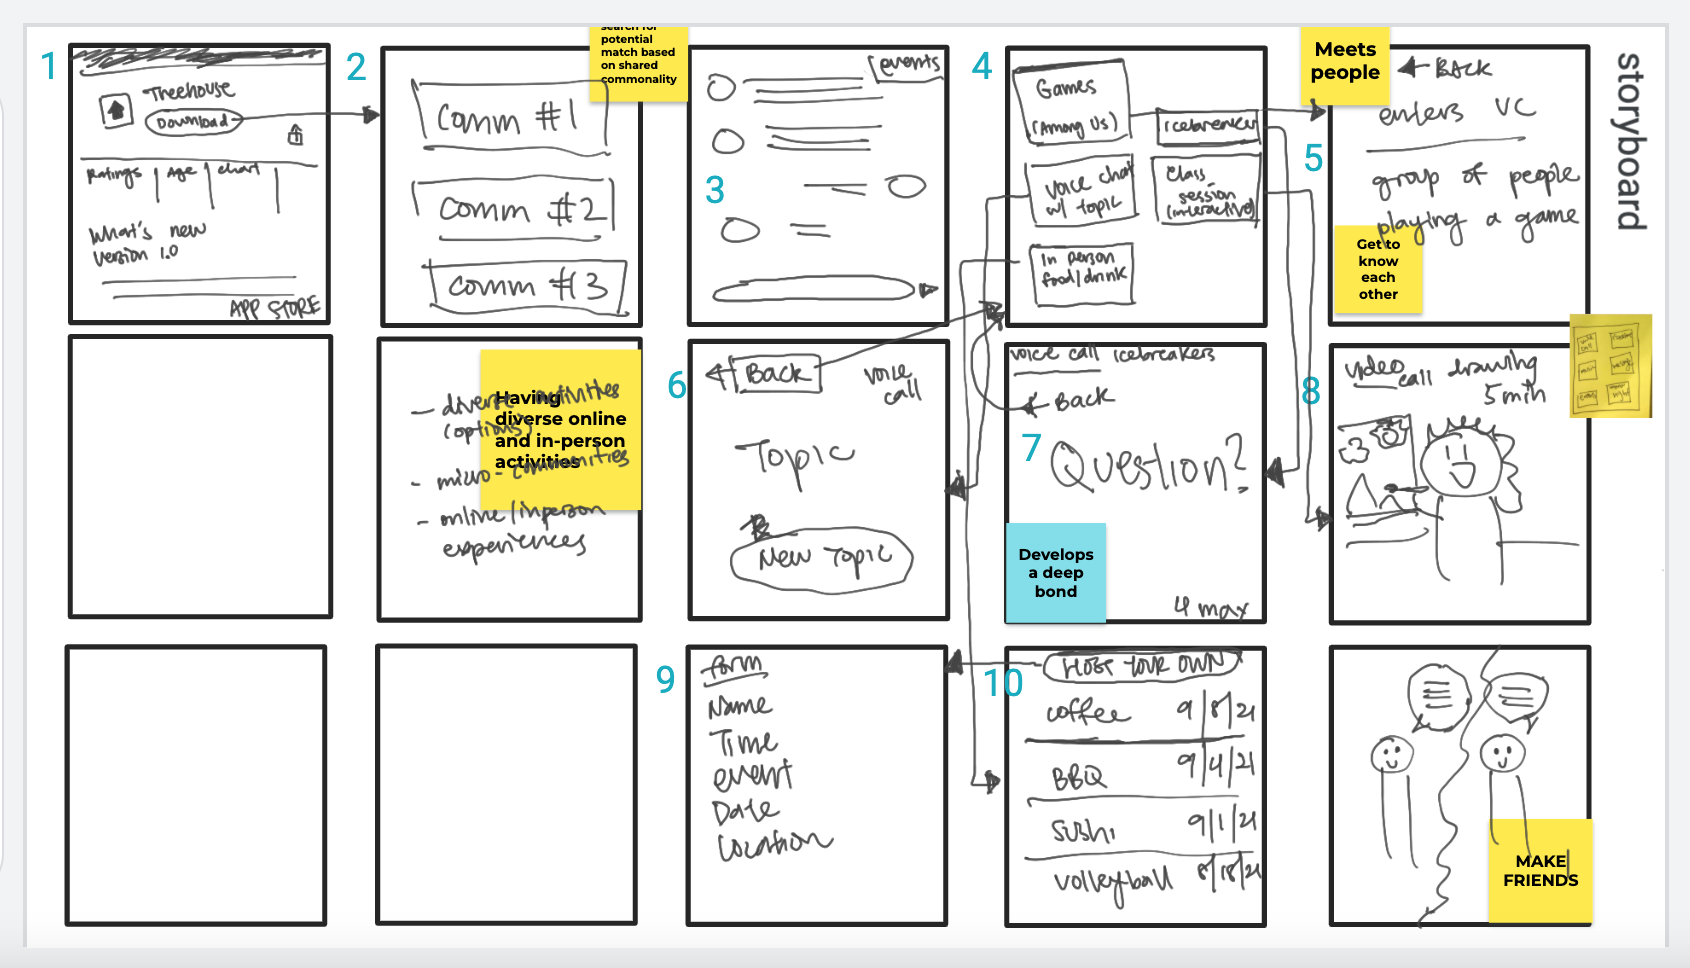 storyboard
1
Treehouse
Download
Ratings | Age | chart |
What's new
Version 1.0
APP STORE
2
search for
potential
match based
on shared
commonality
Comm #1
Comm #2
Comm #3
3
events
4
Games
(Among Us)
icebreaker
Voice chat
w/ topic
Class
session
(interactive)
In person
food/drink
Meets
people
5
BACK
enters VC
group of people
playing a game
Get to
know
each
other
Having
diverse online
and in-person
activities
- diverse activities
(options)
- micro-communities
- online/inperson
experiences
6
Back
voice
call
Topic
New Topic
7
voice call icebreakers
Back
Question?
Develops
a deep
bond
4 max
8
video call drawing
5 min
9
form
Name
Time
event
Date
Location
10
HOST YOUR OWN
coffee 9/8/21
BBQ 9/4/21
Sushi 9/1/21
volleyball 8/18/21
MAKE
FRIENDS